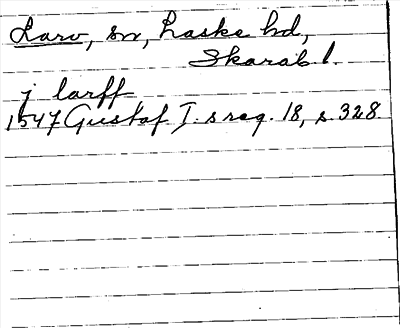 Larv, sn, Laske hd,
Skarab. l.
j larff
1547 Gustaf I. s reg. 18, s. 328.